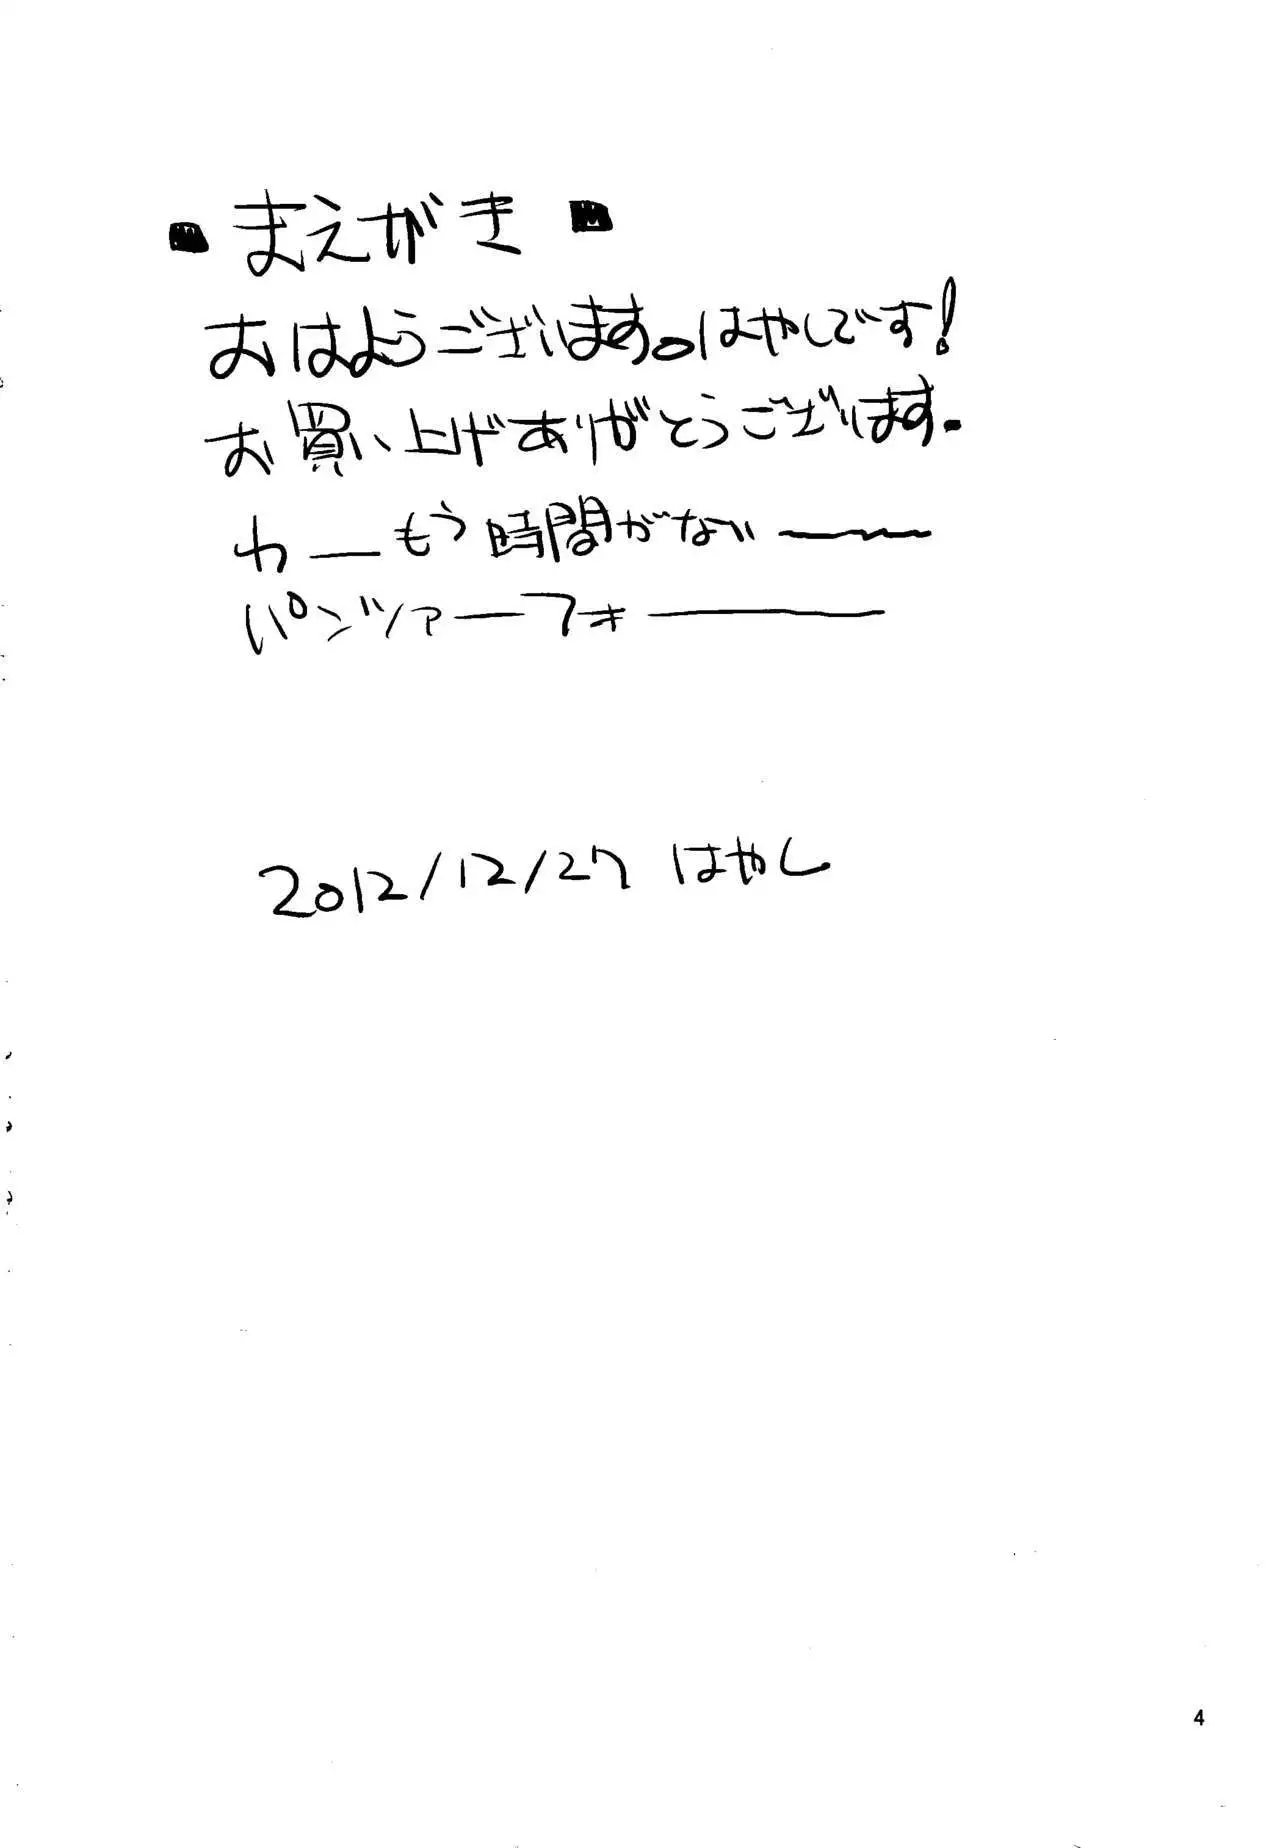 ■まえがき■
おはようございます。はやしです!
お買い上げありがとうございます。
わーもう時間がないー
パンツァーフォー
2012/12/27 はやし
4